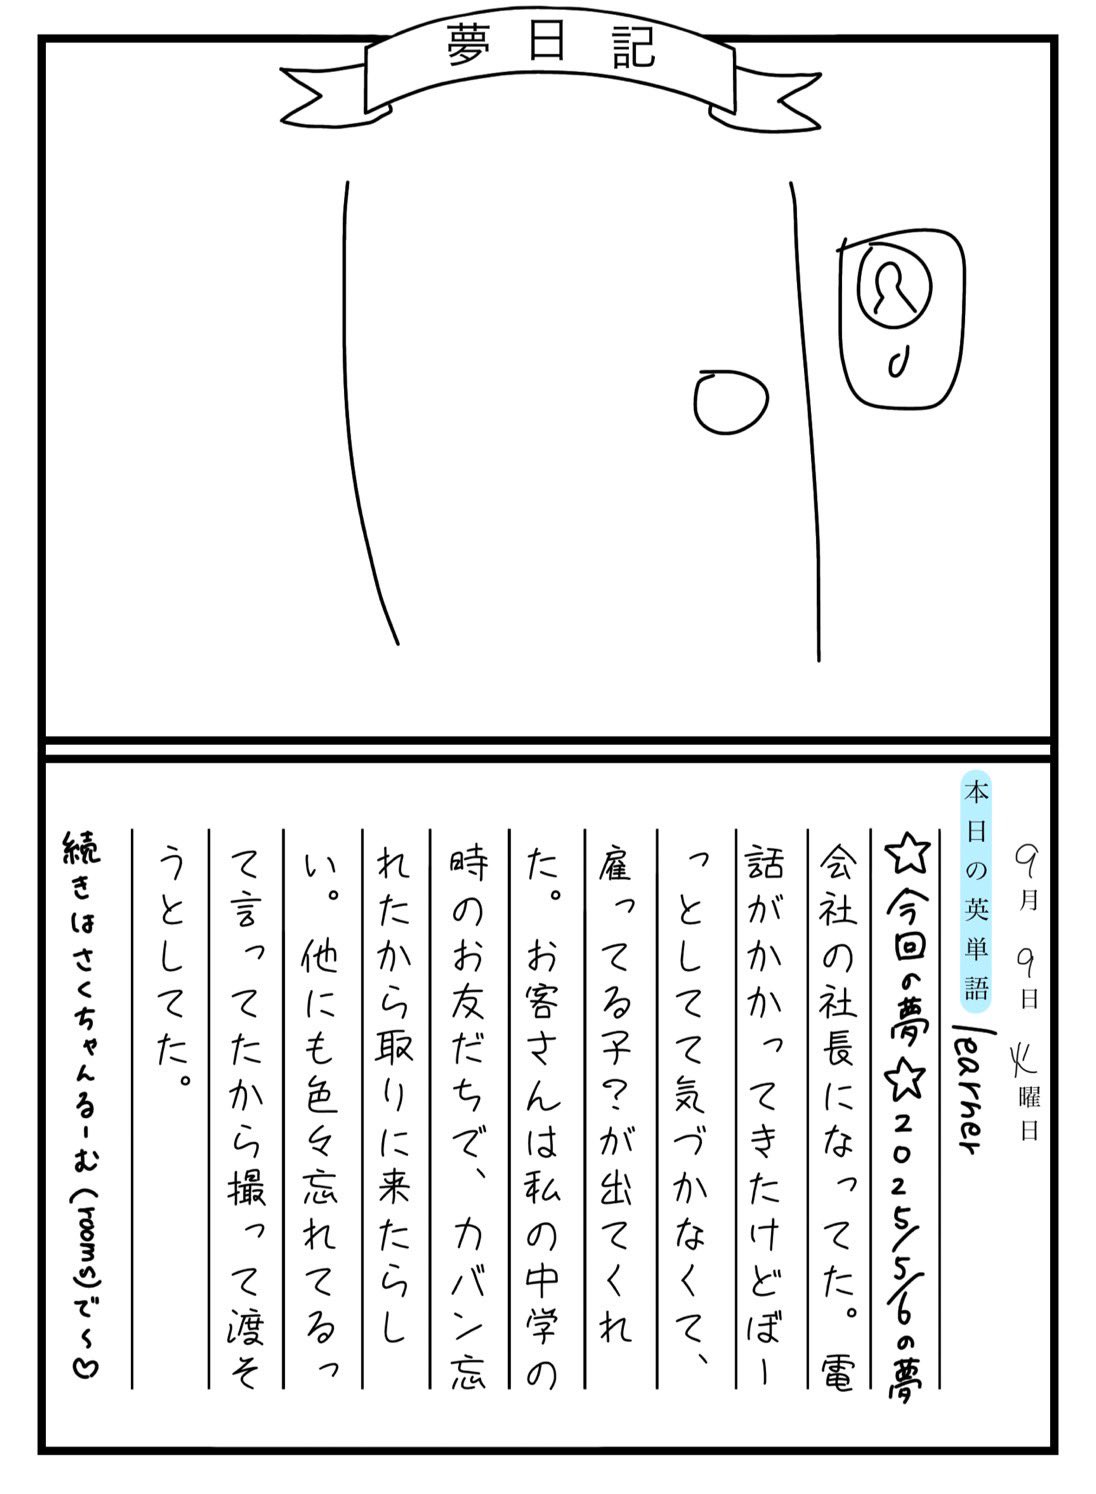 夢日記
9月9日火曜日
本日の英単語 learner
☆今回の夢☆2025/5/6の夢
会社の社長になってた。電
話がかかってきたけどぼー
っとしてて気づかなくて、
雇ってる子?が出てくれ
た。お客さんは私の中学の
時のお友だちで、カバン忘
れたから取りに来たらし
い。他にも色々忘れてるっ
て言ってたから撮って渡そ
うとしてた。
続きはさくちゃんるーむ(rooms)で〜♡